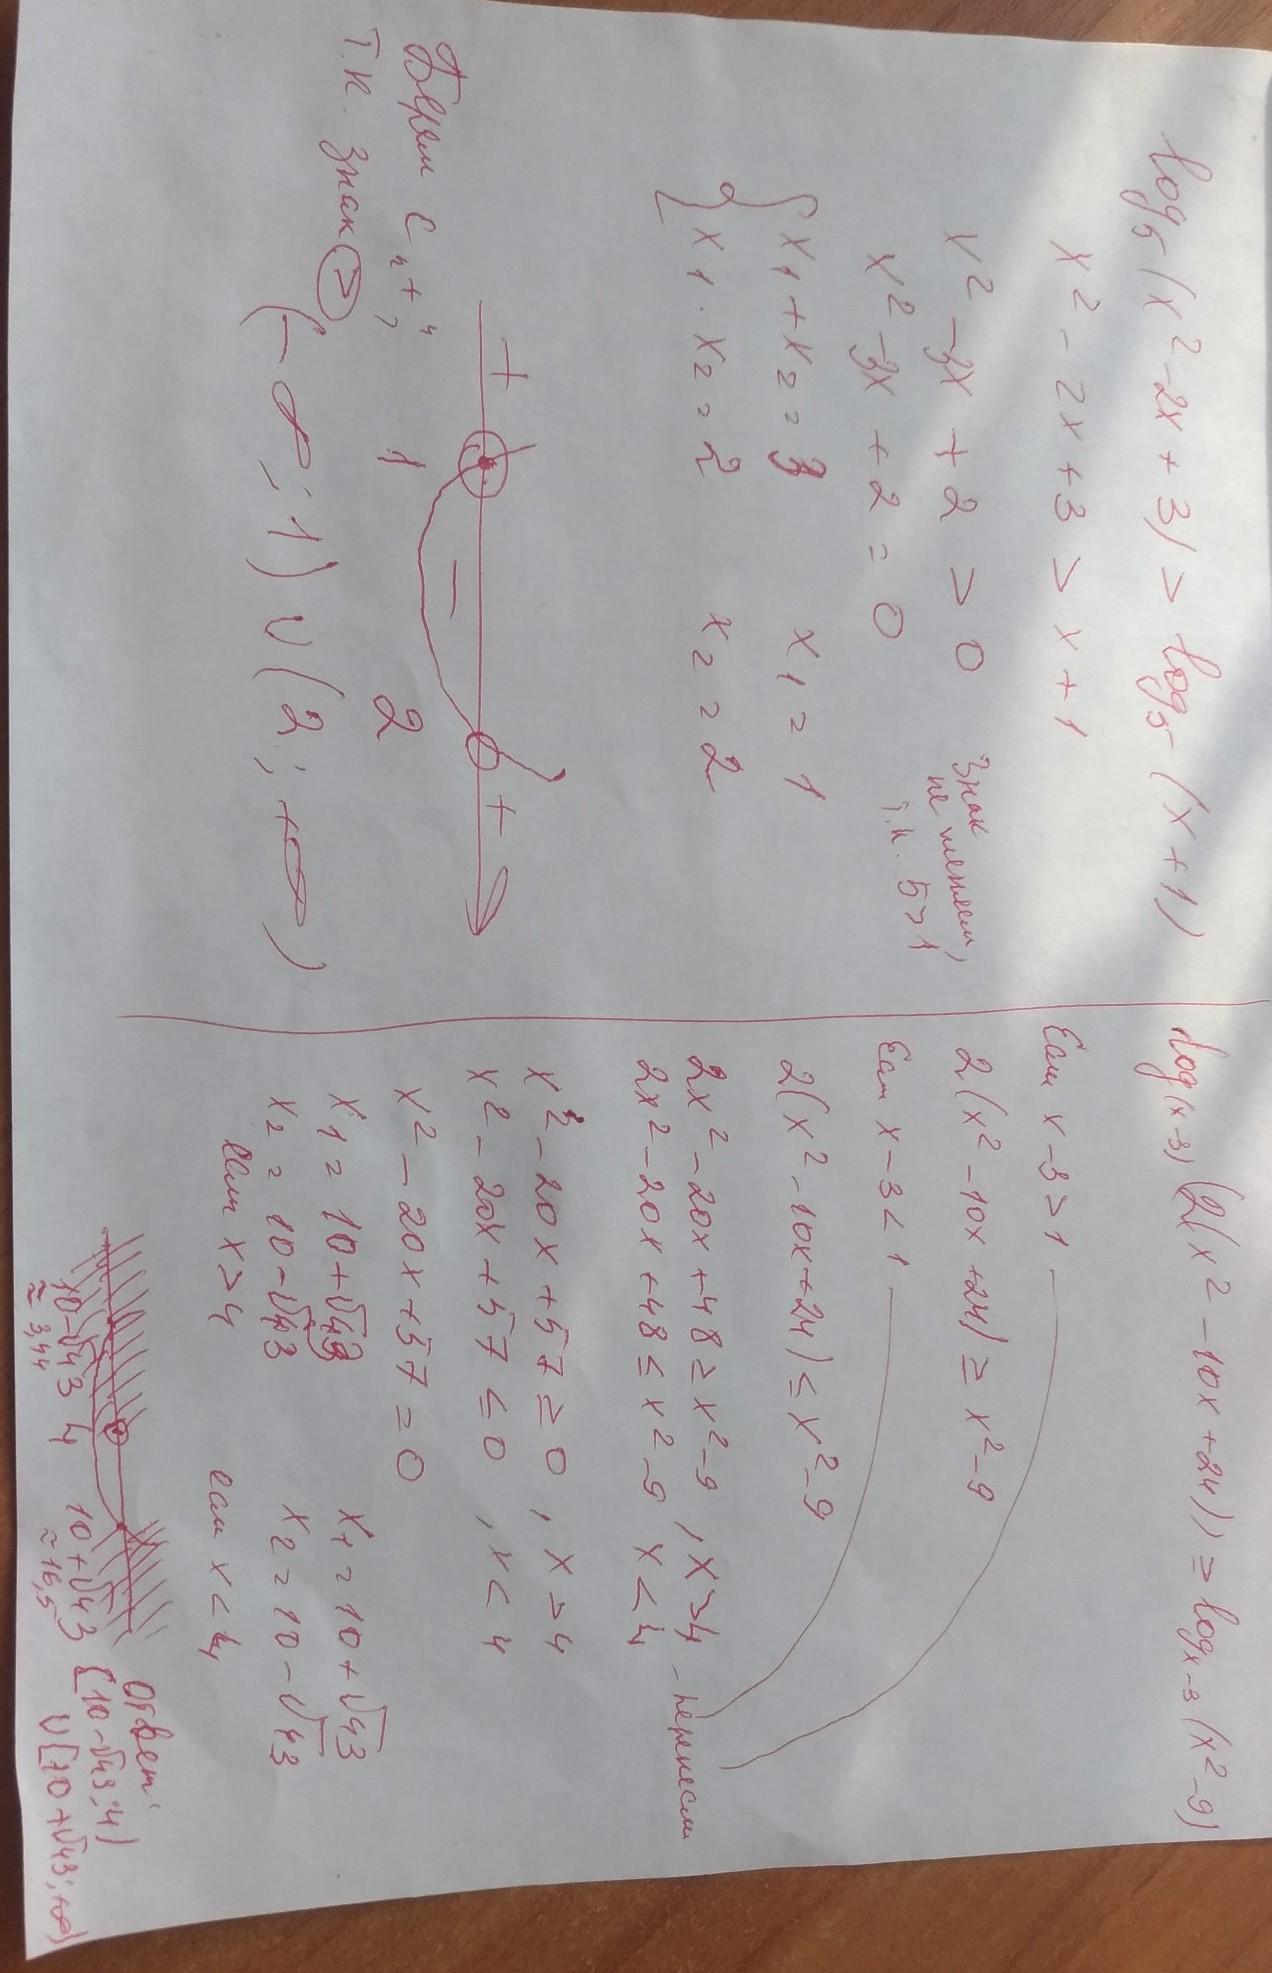 log₅(x² - 2x + 3) > log₅(x + 1)
x² - 2x + 3 > x + 1
x² - 3x + 2 > 0
Знак не меняем,
т.к. 5>1
x² - 3x + 2 = 0
x₁ + x₂ = 3
x₁ = 1
x₁ · x₂ = 2
x₂ = 2
+ - +
1 2
Берём с "+",
т.к. знак >
(-∞; 1) ∪ (2; +∞)
log(x-3) (2(x² - 10x + 24)) ≥ logx-3 (x² - 9)
Если x - 3 > 1
2(x² - 10x + 24) ≥ x² - 9
Если x - 3 < 1
2(x² - 10x + 24) ≤ x² - 9
2x² - 20x + 48 ≥ x² - 9, x > 4 - перенесли
2x² - 20x + 48 ≤ x² - 9 x < 4
x² - 20x + 57 ≥ 0, x > 4
x² - 20x + 57 ≤ 0, x < 4
x² - 20x + 57 = 0
x₁ = 10 + √43 x₁ = 10 + √43
x₂ = 10 - √43 x₂ = 10 - √43
если x > 4 если x < 4
10 - √43 4 10 + √43
≈ 3,44 ≈ 16,5
Ответ:
[10 - √43; 4)
∪ [10 + √43; +∞)